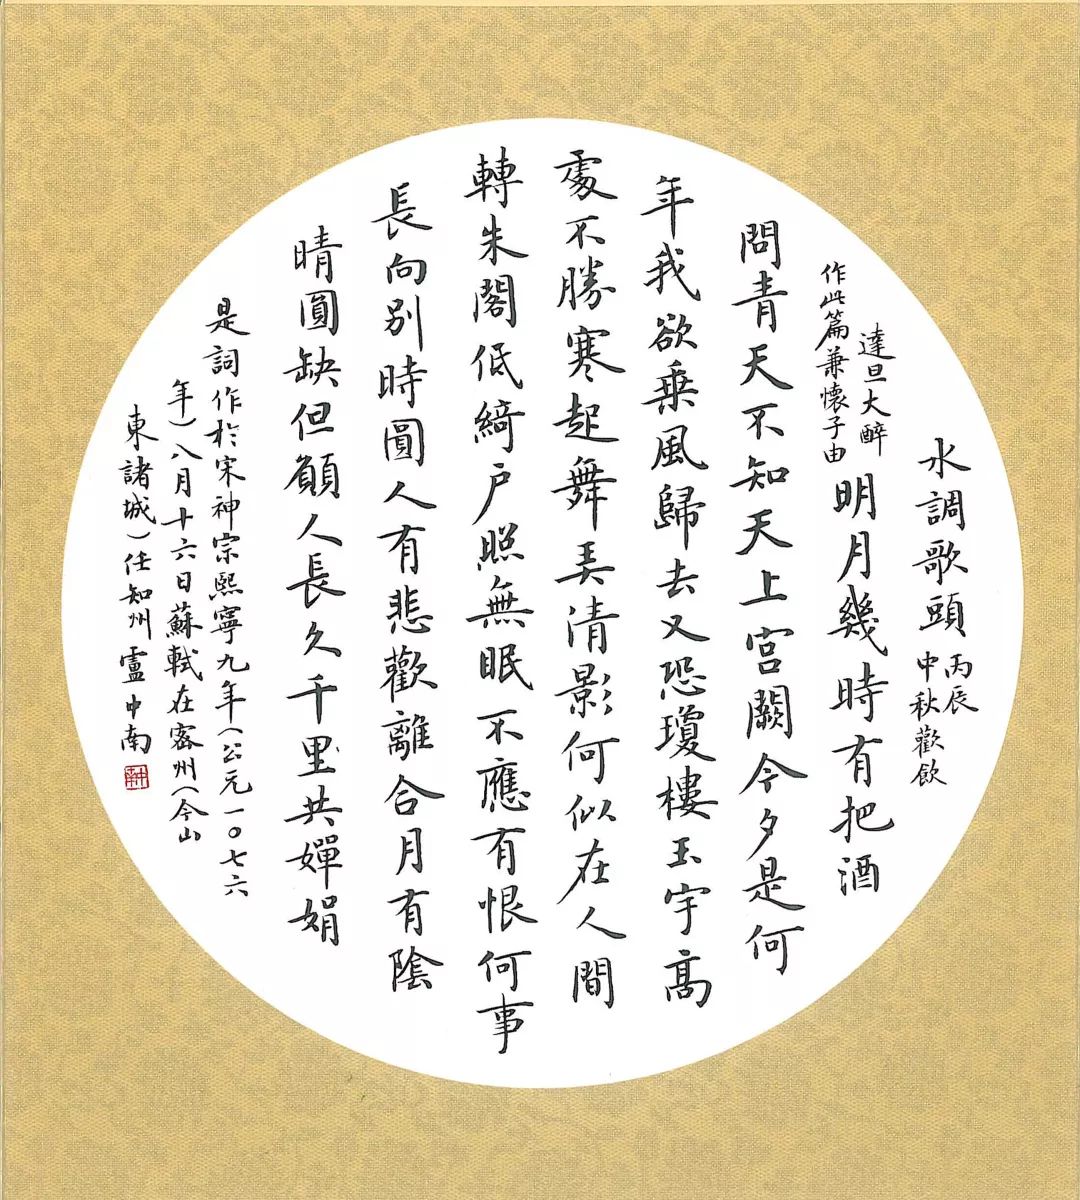 水調歌頭
丙辰
中秋歡飲
達旦大醉
作此篇兼懷子由
明月幾時有把酒
問青天不知天上宮闕今夕是何
年我欲乘風歸去又恐瓊樓玉宇高
處不勝寒起舞弄清影何似在人間
轉朱閣低綺戶照無眠不應有恨何事
長向別時圓人有悲歡離合月有陰
晴圓缺但願人長久千里共嬋娟
是詞作於宋神宗熙寧九年（公元一〇七六
年）八月十六日蘇軾在密州（今山
東諸城）任知州 盧中南